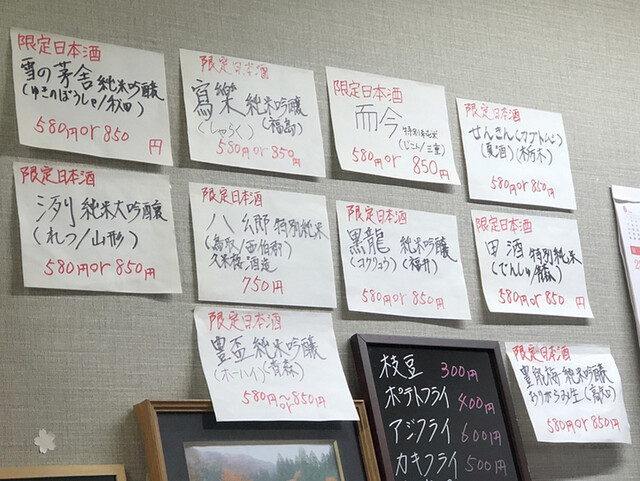 限定日本酒
雪の茅舎 純米吟醸
(ゆきのぼうしゃ/秋田)
580円or 850円
限定日本酒
寫樂 純米吟醸
(しゃらく) (福島)
580円or 850円
限定日本酒
而今 特別純米
(じこん/三重)
580円or 850円
限定日本酒
せんきん
(夏酒)(栃木)
580円or 850円
限定日本酒
洌 純米大吟醸
(れつ/山形)
580円or 850円
八郷 特別純米
(鳥取/西伯郡)
久米桜酒造
750円
限定日本酒
黒龍 純米吟醸
(コクリュウ) (福井)
580円or 850円
限定日本酒
田酒 特別純米
(でんしゅ/青森)
580円or 850円
限定日本酒
豊盃 純米吟醸
(ホーハイ) (青森)
580円〜or850円
限定日本酒
豊能梅 純米吟醸
580円or 850円
枝豆 300円
ポテトフライ 400円
アジフライ 600円
カキフライ 500円